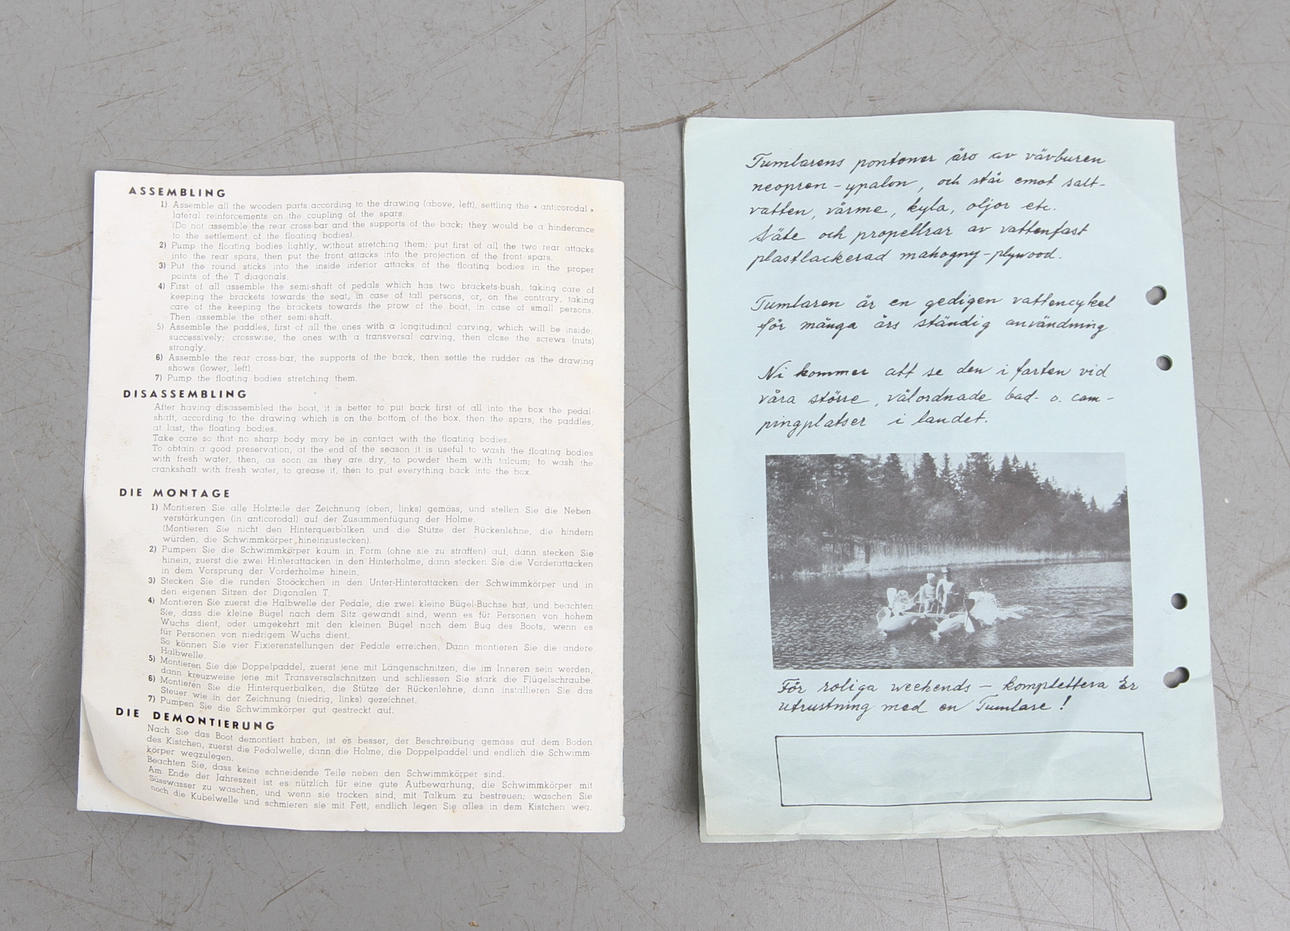 ASSEMBLING
1) Assemble all the wooden parts according to the drawing (above, left), settling the « anticorodal »
lateral reinforcements on the coupling of the spars.
(Do not assemble the rear cross-bar and the supports of the back; they would be a hinderance
to the settlement of the floating bodies).
2) Pump the floating bodies lightly, without stretching them; put first of all the two rear attacks
into the rear spars, then put the front attacks into the projection of the front spars.
3) Put the round sticks into the inside inferior attacks of the floating bodies in the proper
points of the T diagonals.
4) First of all assemble the semi-shaft of pedals which has two brackets-bush, taking care of
keeping the brackets towards the seat, in case of tall persons, or, on the contrary, taking
care of the keeping the brackets towards the prow of the boat, in case of small persons.
Then assemble the other semi-shaft.
5) Assemble the paddles, first of all the ones with a longitudinal carving, which will be inside;
successively; crosswise, the ones with a transversal carving, then close the screws (nuts)
strongly.
6) Assemble the rear cross-bar, the supports of the back, then settle the rudder as the drawing
shows (lower, left).
7) Pump the floating bodies stretching them.
DISASSEMBLING
After having disassembled the boat, it is better to put back first of all into the box the pedal-
shaft, according to the drawing which is on the bottom of the box, then the spars, the paddles,
at last, the floating bodies.
Take care so that no sharp body may be in contact with the floating bodies.
To obtain a good preservation, at the end of the season it is useful to wash the floating bodies
with fresh water, then, as soon as they are dry, to powder them with talcum; to wash the
crankshaft with fresh water, to grease it, then to put everything back into the box.
DIE MONTAGE
1) Montieren Sie alle Holzteile der Zeichnung (oben, links) gemäss, und stellen Sie die Neben
verstärkungen (in anticorodal) auf der Zusammenfügung der Holme.
(Montieren Sie nicht den Hinterquerbalken und die Stütze der Rückenlehne, die hindern
würden, die Schwimmkörper hineinzustecken).
2) Pumpen Sie die Schwimmkörper kaum in Form (ohne sie zu straffen) auf, dann stecken Sie
hinein, zuerst die zwei Hinterattacken in den Hinterholme, dann stecken Sie die Vorderattacken
in dem Vorsprung der Vorderholme hinein.
3) Stecken Sie die runden Stoöckchen in den Unter-Hinterattacken der Schwimmkörper und in
den eigenen Sitzen der Digonalen T.
4) Montieren Sie zuerst die Halbwelle der Pedale, die zwei kleine Bügel-Buchse hat, und beachten
Sie, dass die kleine Bügel nach dem Sitz gewandt sind, wenn es für Personen von hohem
Wuchs dient, oder umgekehrt mit den kleinen Bügel nach dem Bug des Boots, wenn es
für Personen von niedrigem Wuchs dient.
So können Sie vier Fixierenstellungen der Pedale erreichen. Dann montieren Sie die andere
Halbwelle.
5) Montieren Sie die Doppelpaddel, zuerst jene mit Längenschnitzen, die im Inneren sein werden,
dann kreuzweise jene mit Transversalschnitzen und schliessen Sie stark die Flügelschraube.
6) Montieren Sie die Hinterquerbalken, die Stütze der Rückenlehne, dann installieren Sie das
Steuer wie in der Zeichnung (niedrig, links) gezeichnet.
7) Pumpen Sie die Schwimmkörper gut gestreckt auf.
DIE DEMONTIERUNG
Nach Sie das Boot demontiert haben, ist es besser, der Beschreibung gemäss auf dem Boden
des Kistchen, zuerst die Pedalwelle, dann die Holme, die Doppelpaddel und endlich die Schwimm-
körper wegzulegen.
Beachten Sie, dass keine schneidende Teile neben den Schwimmkörper sind.
Am Ende der Jahreszeit ist es nützlich für eine gute Aufbewahrung, die Schwimmkörper mit
Süsswasser zu waschen, und wenn sie trocken sind, mit Talkum zu bestreuen; waschen Sie
noch die Kubelwelle und schmieren sie mit Fett, endlich legen Sie alles in dem Kistchen weg.
Tumlarens pontoner äro av vävburen
neopren-ypalon, och står emot salt-
vatten, värme, kyla, oljor etc.
Säte och propellrar av vattenfast
plastlackerad mahogny-plywood.
Tumlaren är en gedigen vattencykel
för många års ständig användning
Ni kommer att se den i farten vid
våra större, välordnade bad- o. cam-
pingplatser i landet.
För roliga weekends – komplettera Er
utrustning med en Tumlare!